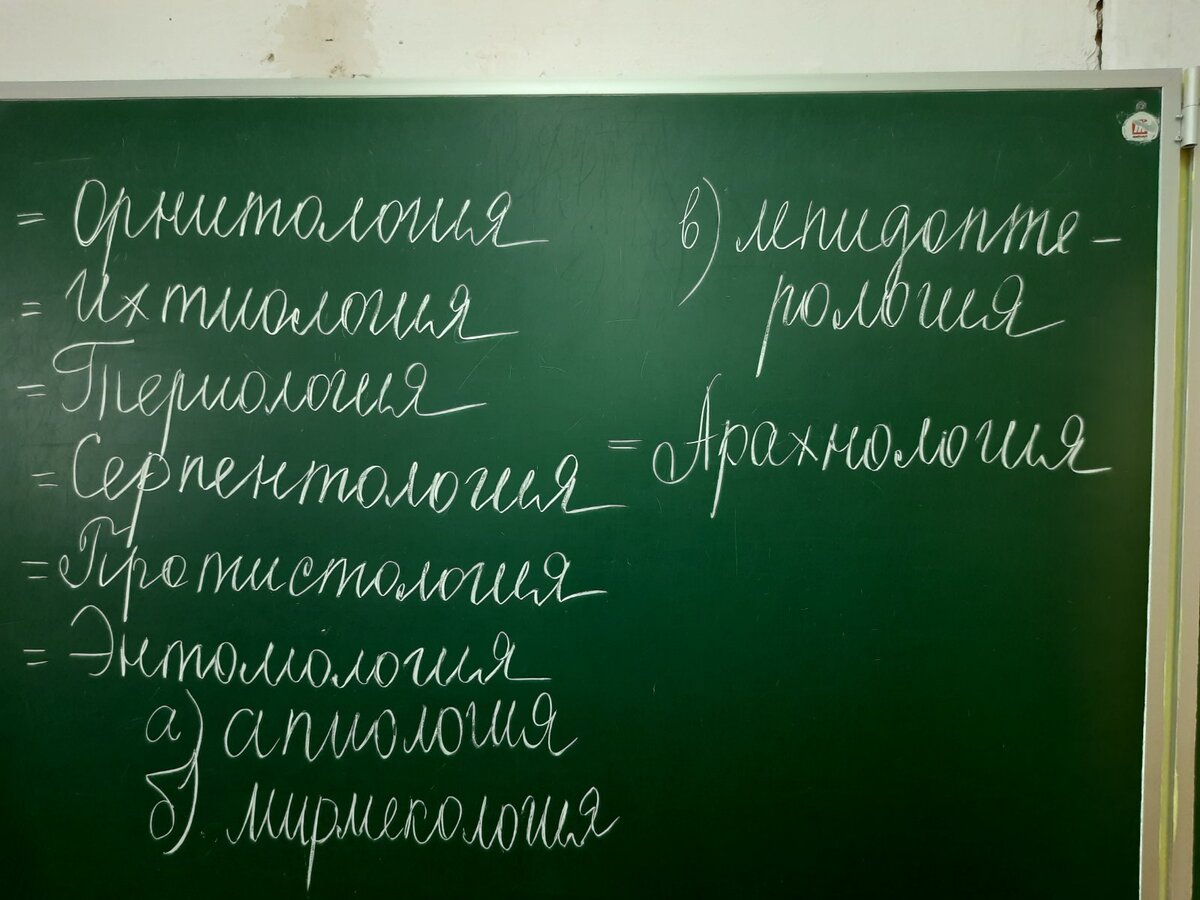 = Орнитология
= Ихтиология
= Териология
= Серпентология
= Протистология
= Энтомология
а) апиология
б) мирмекология
в) лепидопте-
рология
= Арахнология